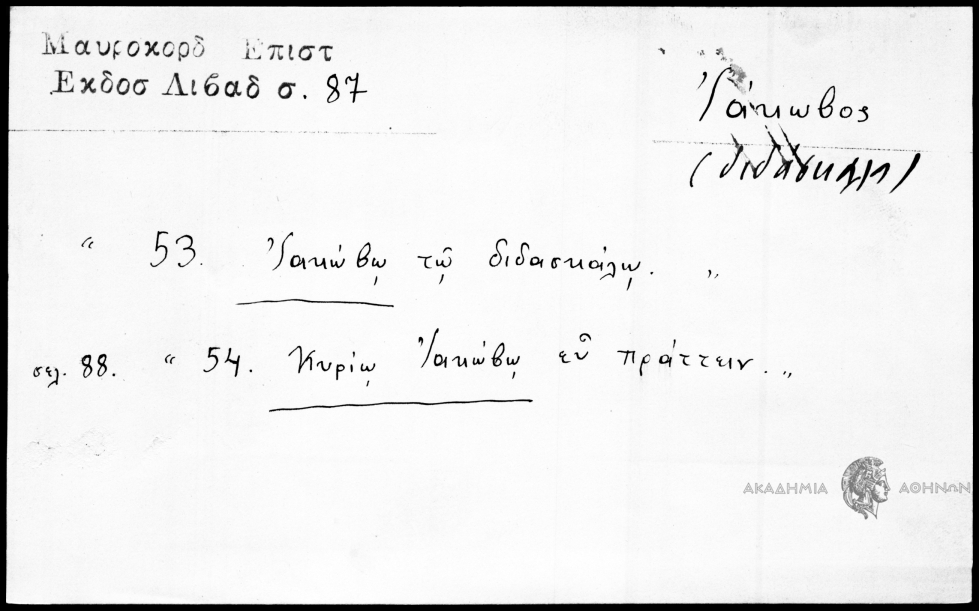 Μαυροκορδ Επιστ
Εκδοσ Λιβαδ σ. 87
Ἰάκωβος
(διδάσκαλ
“ 53. Ἰακώβῳ τῷ διδασκάλῳ. „
σελ. 88. “ 54. Κυρίῳ Ἰακώβῳ εὖ πράττειν. „
ΑΚΑΔΗΜΙΑ ΑΘΗΝΩΝ